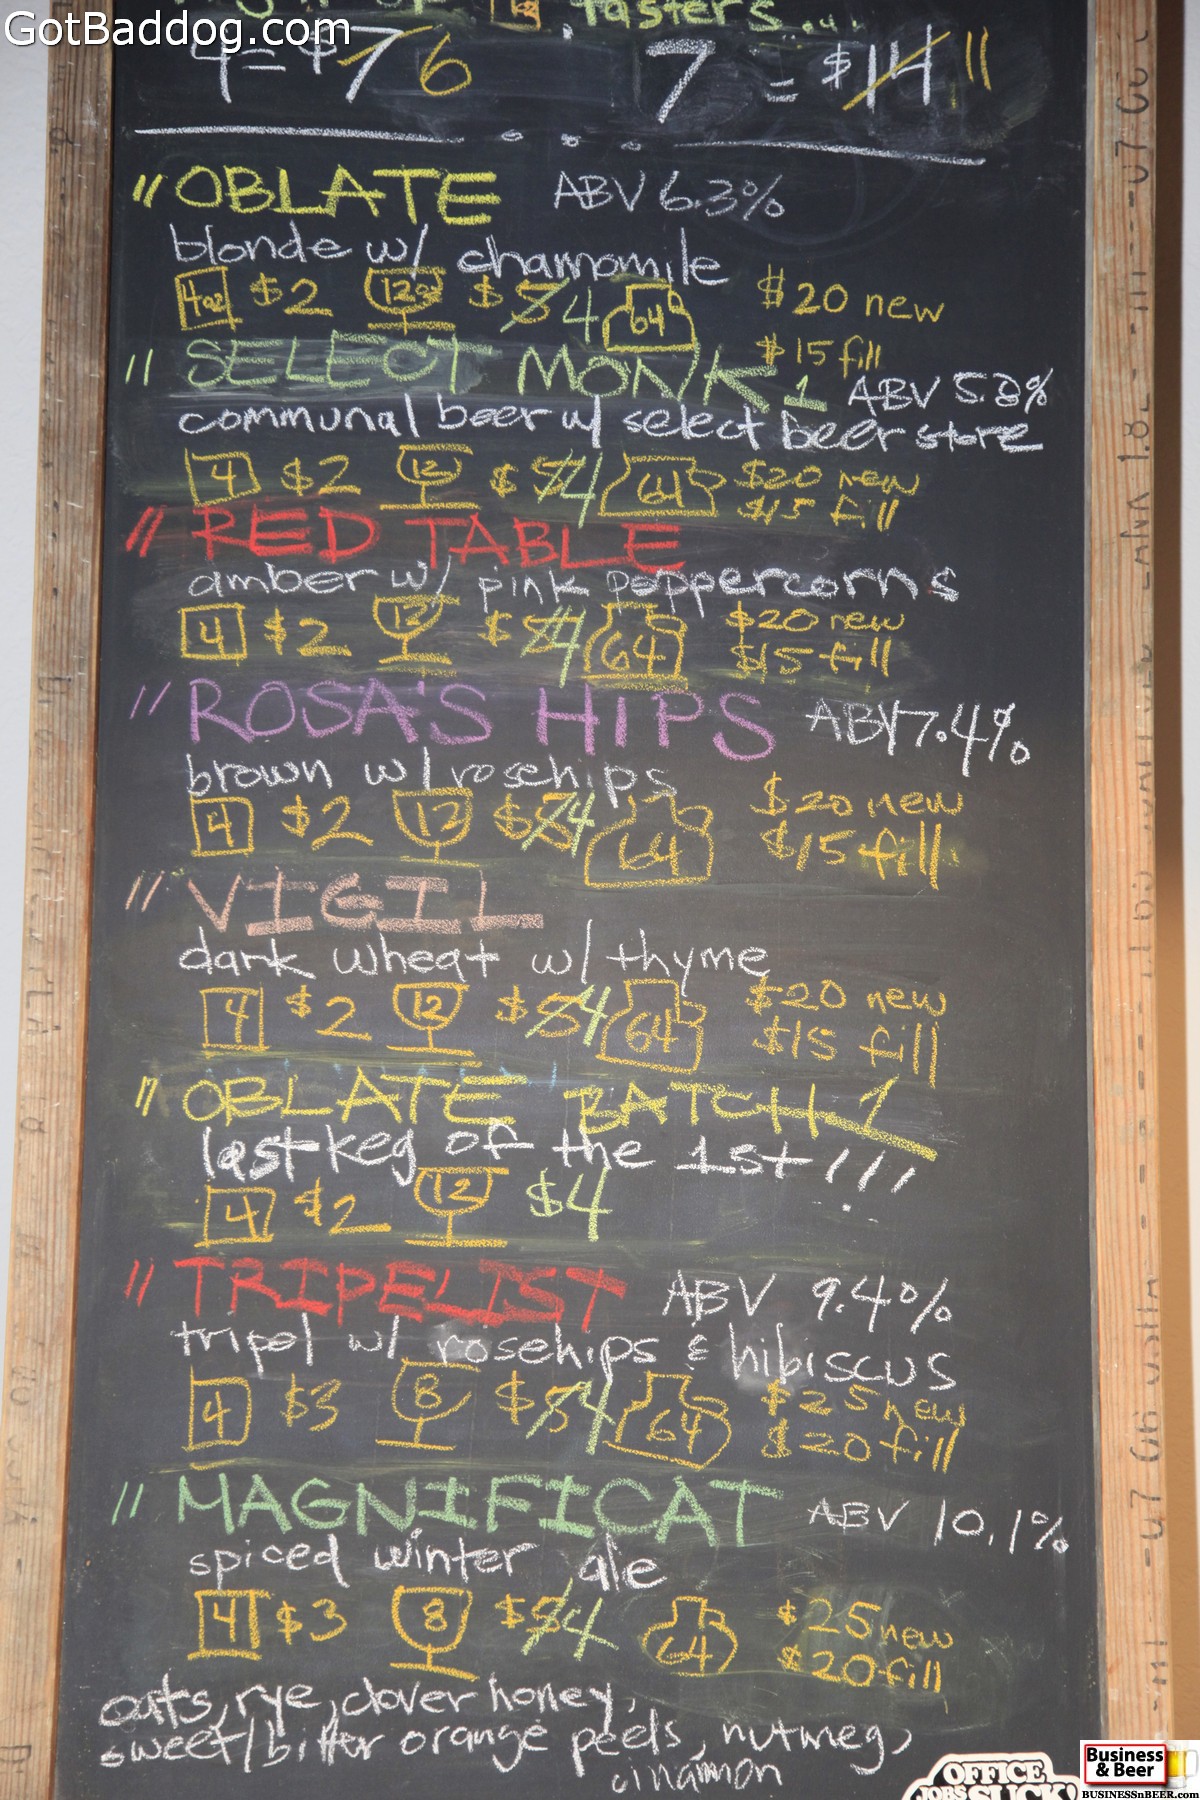 GotBaddog.com
tasters...
4 = $7 6 7 = $14 11
"OBLATE ABV 6.3%
blonde w/ chamomile
4oz $2 12oz $5 4 64 $20 new
$15 fill
"SELECT MONK 1 ABV 5.8%
communal beer w/ select beer store
4 $2 12 $5 4 64 $20 new
$15 fill
"RED TABLE
amber w/ pink peppercorns
4 $2 12 $5 4 64 $20 new
$15 fill
"ROSA'S HIPS ABV 7.4%
brown w/ rosehips
4 $2 12 $5 4 64 $20 new
$15 fill
"VIGIL
dark wheat w/ thyme
4 $2 12 $5 4 64 $20 new
$15 fill
"OBLATE BATCH 1
last keg of the 1st!!!
4 $2 12 $4
"TRIPELIST ABV 9.4%
tripel w/ rosehips & hibiscus
4 $3 8 $5 4 64 $25 new
$20 fill
"MAGNIFICAT ABV 10.1%
spiced winter ale
4 $3 8 $5 4 64 $25 new
$20 fill
oats, rye, clover honey,
sweet/bitter orange peels, nutmeg,
cinammon
OFFICE
JOBS SUCK!
Business
& Beer
BUSINESSnBEER.com